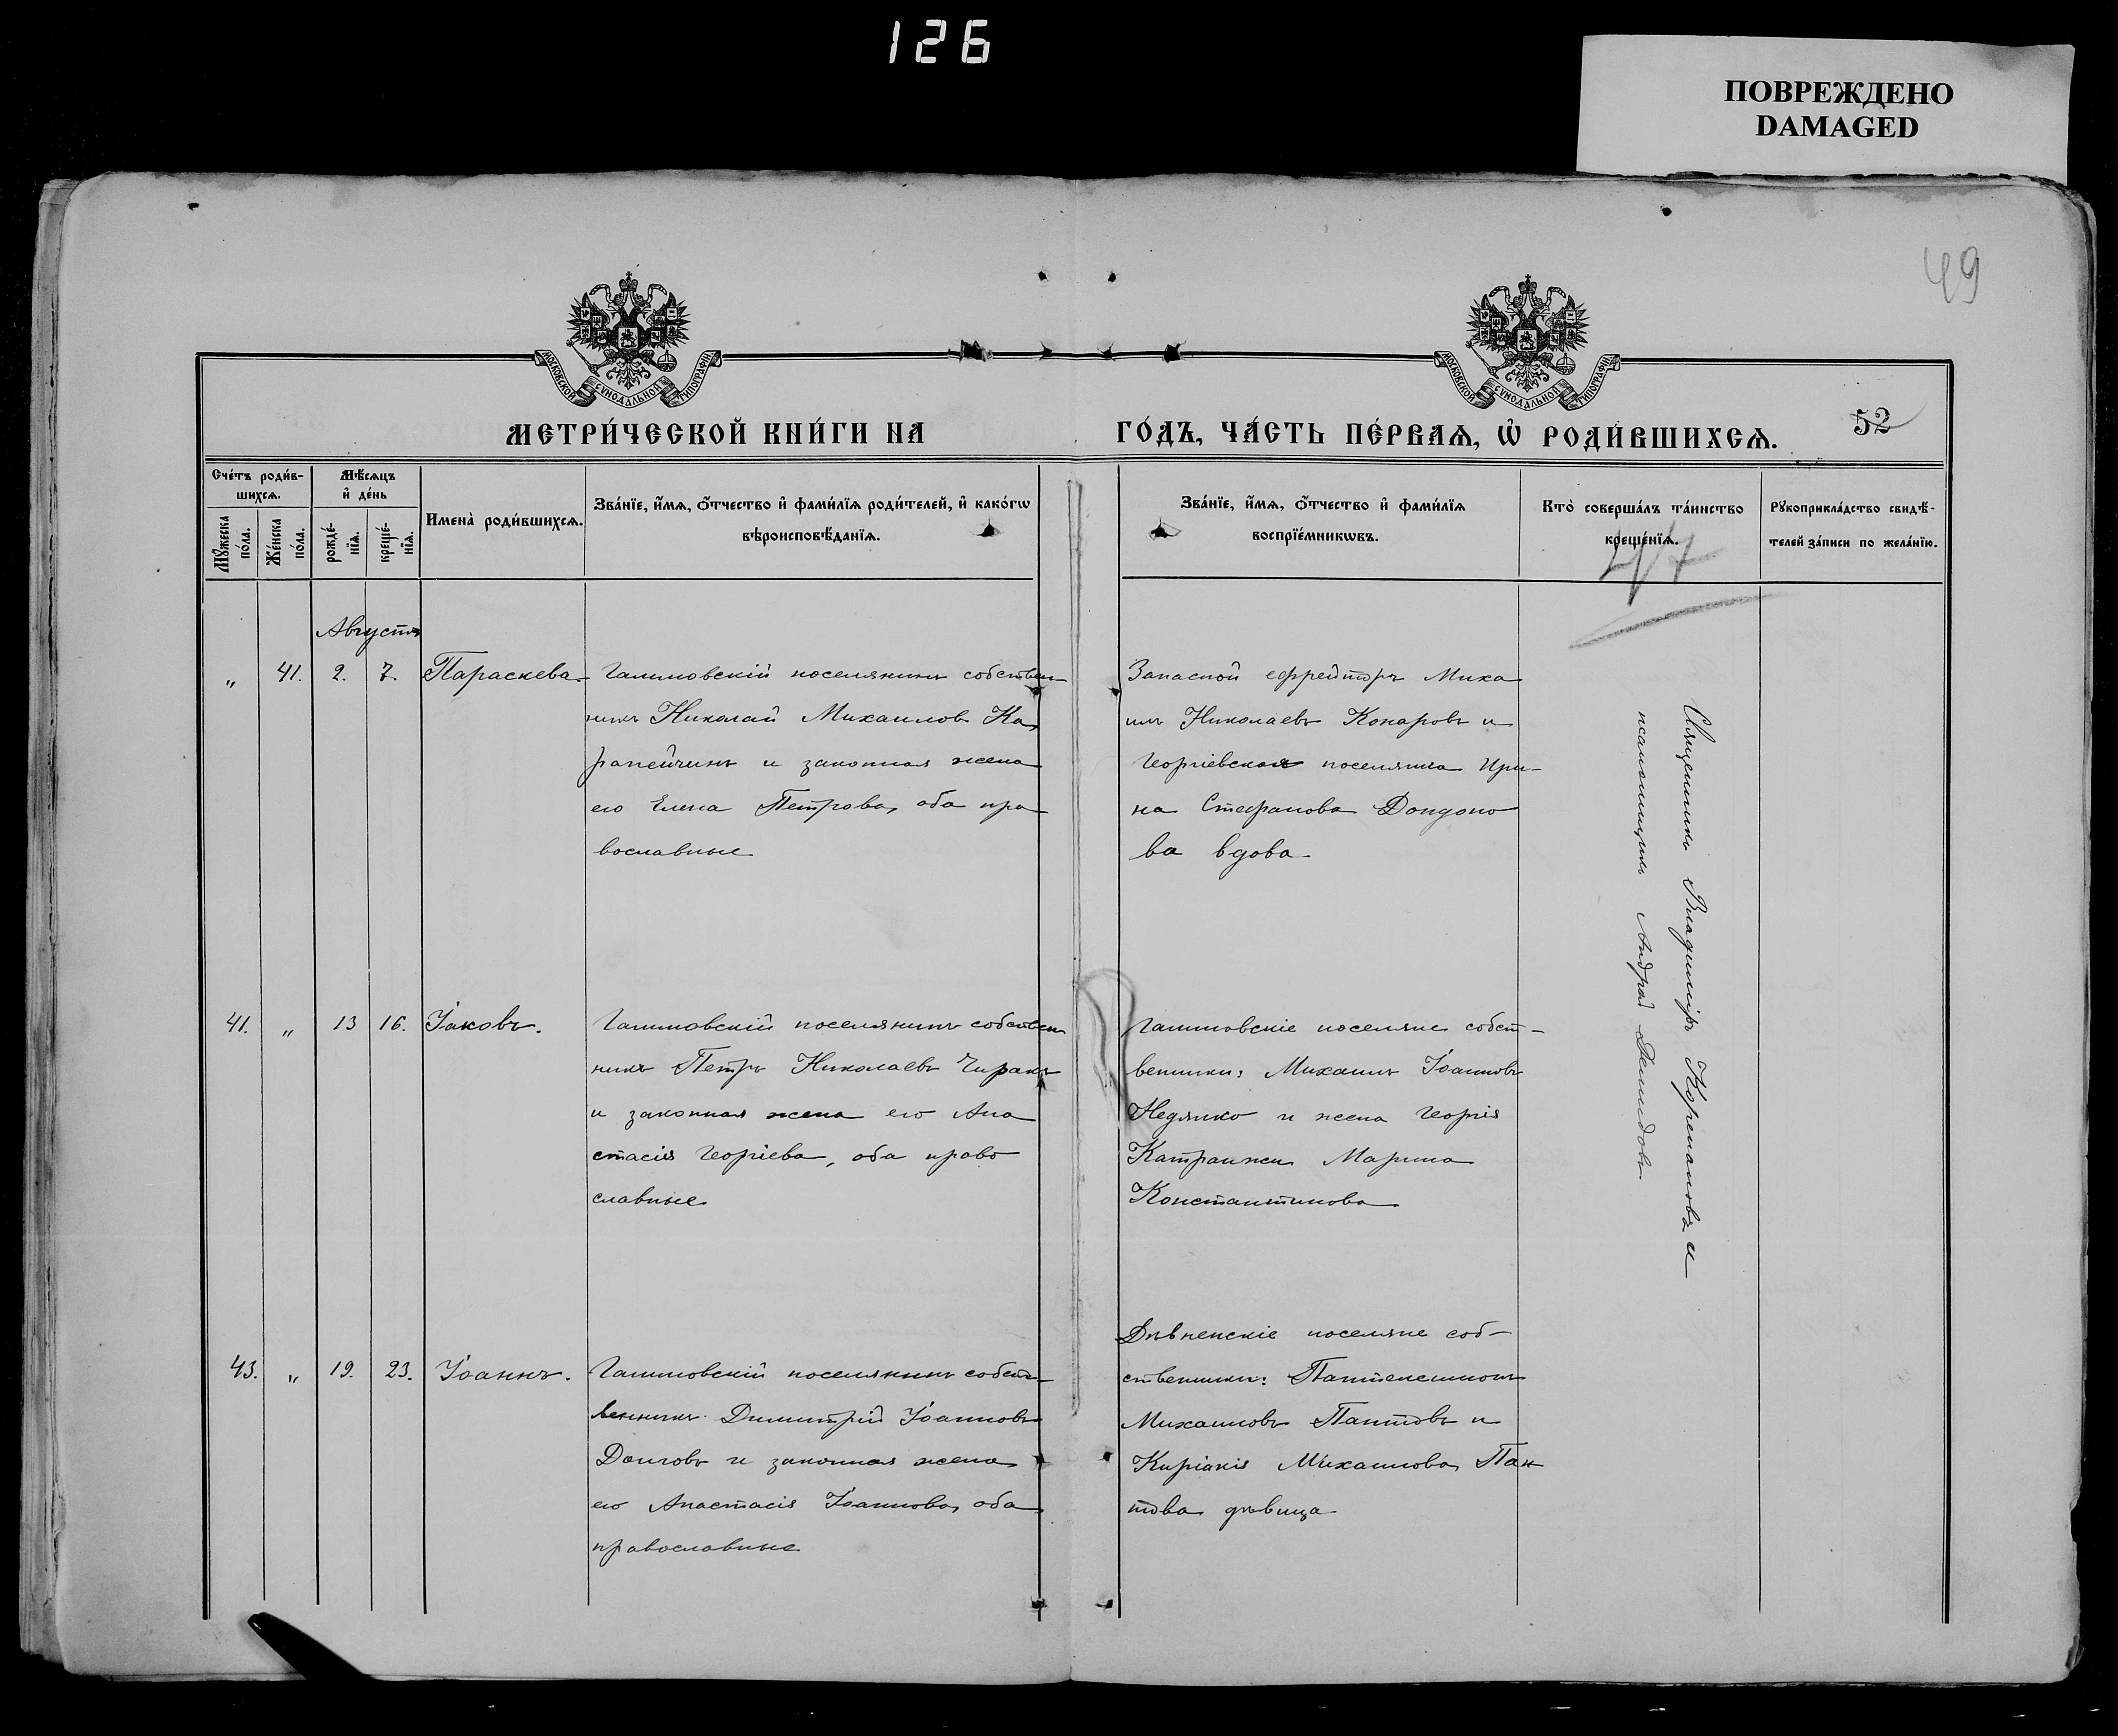 126
ПОВРЕЖДЕНО
DAMAGED
49
МОСКОВСКОЙ СѴНОДАЛЬНОЙ ТИПОГРАФІИ
МОСКОВСКОЙ СѴНОДАЛЬНОЙ ТИПОГРАФІИ
МЕТРИ́ЧЕСКОЙ КНИ́ГИ НА
ГО́ДЪ, ЧА́СТЬ ПЕ́РВАѦ, Ѡ҆ РОДИ́ВШИХСѦ.
52
Сче́тъ роди́в-
шихсѧ.
Мꙋ́жеска
по́ла.
Же́нска
по́ла.
Мѣ́сѧцъ
и҆ де́нь
рожде́-
нїѧ.
креще́-
нїѧ.
Имена̀ роди́вшихсѧ.
Зва́нїе, и҆́мѧ, ѻ҆́тчество и҆ фами́лїѧ роди́телей, и҆ како́гѡ
вѣроисповѣ́данїѧ.
Зва́нїе, и҆́мѧ, ѻ҆́тчество и҆ фами́лїѧ
воспрїе́мникѡвъ.
Кто̀ соверша́лъ та́инство
креще́нїѧ.
Рꙋкоприкла́дство свидѣ́-
телей за́писи по жела́нїю.
47
Августъ
„ 41. 2. 7. Параскева
Галиловскій поселянинъ собствен
никъ Николай Михаиловъ Ка
рапейчинъ и законная жена
его Елена Петрова, оба пра
вославные
Запасной ефрейторъ Миха
илъ Николаевъ Конаровъ и
Георгіевская поселянка Ири-
на Стефанова Дондоно
ва вдова
41. „ 13 16. Іаковъ.
Галиловскій поселянинъ собствен
никъ Петръ Николаевъ Чиракъ
и законная жена его Ана
стасія Георгіева, оба право
славные
Галиловскіе поселяне собст-
венники: Михаилъ Іоанновъ
Недялко и жена Георгія
Катранжи Марина
Константинова
43. „ 19. 23. Іоаннъ.
Галиловскій поселянинъ собст-
венникъ Димитрій Іоанновъ
Долговъ и законная жена
его Анастасія Іоаннова, оба
православные
поселяне соб-
ственники: Пантелеимонъ
Михаиловъ Пантовъ и
Киріакія Михаилова Пан
това дѣвица
Священникъ Владиміръ и
псаломщикъ Андрей Демидовъ